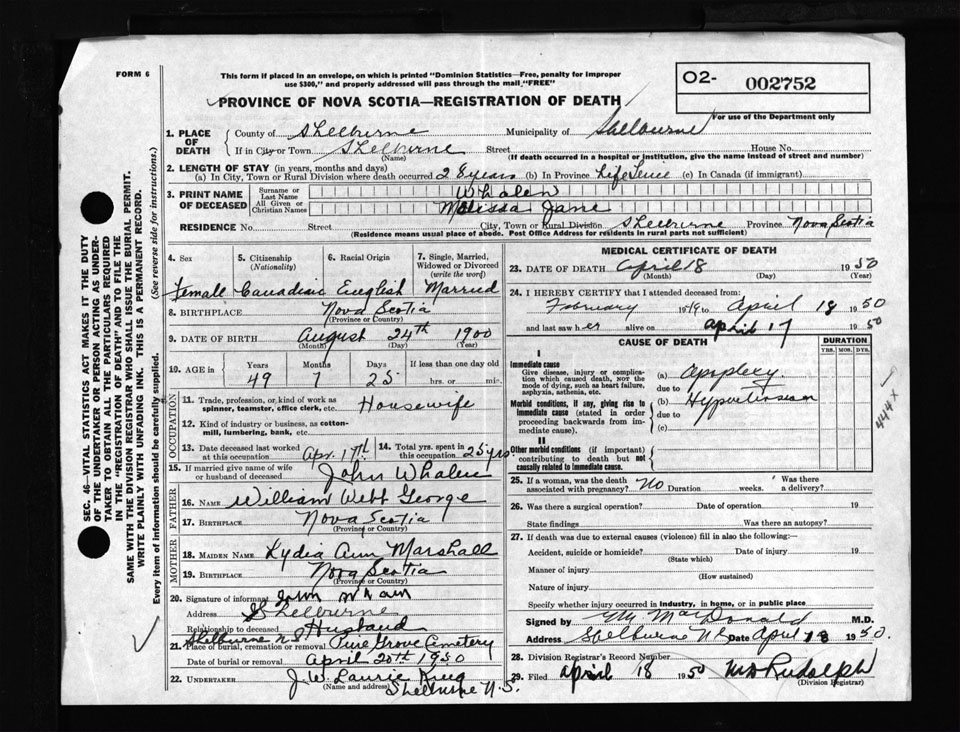 FORM 6
This form if placed in an envelope, on which is printed "Dominion Statistics—Free, penalty for improper
use $300," and properly addressed will pass through the mail "FREE"
O2- 002752
For use of the Department only
PROVINCE OF NOVA SCOTIA—REGISTRATION OF DEATH
1. PLACE OF DEATH
County of Shelburne Municipality of Shelburne
If in City or Town Shelburne Street House No.
(Name) (If death occurred in a hospital or institution, give the name instead of street and number)
2. LENGTH OF STAY (in years, months and days)
(a) In City, Town or Rural Division where death occurred 28 years (b) In Province Life Time (c) In Canada (if immigrant)
3. PRINT NAME OF DECEASED
Surname or Last Name Whalen
All Given or Christian Names Melissa Jane
RESIDENCE No. Street City, Town or Rural Division Shelburne Province Nova Scotia
(Residence means usual place of abode. Post Office Address for residents in rural parts not sufficient)
4. Sex 5. Citizenship (Nationality) 6. Racial Origin 7. Single, Married, Widowed or Divorced (write the word)
Female Canadian English Married
8. BIRTHPLACE Nova Scotia
(Province or Country)
9. DATE OF BIRTH August 24th 1900
(Month) (Day) (Year)
10. AGE in Years Months Days If less than one day old
49 7 25 hrs. or min.
OCCUPATION
11. Trade, profession, or kind of work as spinner, teamster, office clerk, etc. Housewife
12. Kind of industry or business, as cotton-mill, lumbering, bank, etc.
13. Date deceased last worked at this occupation Apr. 17th 14. Total yrs. spent in this occupation 25 yrs
15. If married give name of wife or husband of deceased John Whalen
FATHER
16. NAME William Webb George
17. BIRTHPLACE Nova Scotia
(Province or Country)
MOTHER
18. MAIDEN NAME Lydia Ann Marshall
19. BIRTHPLACE Nova Scotia
(Province or Country)
20. Signature of informant John
Address Shelburne
Relationship to deceased Husband
Shelburne N.S.
21. Place of burial, cremation or removal Pine Grove Cemetery
Date of burial or removal April 20th 1950
22. UNDERTAKER J. W. Laurie King
(Name and address) Shelburne N.S.
MEDICAL CERTIFICATE OF DEATH
23. DATE OF DEATH April 18 1950
(Month) (Day) (Year)
24. I HEREBY CERTIFY that I attended deceased from:
February 1949 to April 18 1950
and last saw her alive on April 17 1950
CAUSE OF DEATH
DURATION
YRS. MOS. DYS.
I
Immediate cause
Give disease, injury or complication which caused death, not the mode of dying, such as heart failure, asphyxia, asthenia, etc.
(a) Apoplexy
due to
Morbid conditions, if any, giving rise to immediate cause (stated in order proceeding backwards from immediate cause).
(b) Hypertension
due to
(c)
444 x
II
Other morbid conditions (if important) contributing to death but not causally related to immediate cause.
25. If a woman, was the death associated with pregnancy? No Duration weeks. Was there a delivery?
26. Was there a surgical operation? Date of operation 19
State findings Was there an autopsy?
27. If death was due to external causes (violence) fill in also the following:
Accident, suicide or homicide? Date of injury 19
(State which)
Manner of injury
(How sustained)
Nature of injury
Specify whether injury occurred in industry, in home, or in public place
Signed by MacDonald M.D.
Address Shelburne N.S. Date April 18 1950.
28. Division Registrar's Record Number
29. Filed April 18 1950 Rudolph
(Division Registrar)
SEC. 46—VITAL STATISTICS ACT MAKES IT THE DUTY
OF THE UNDERTAKER OR PERSON ACTING AS UNDER-
TAKER TO OBTAIN ALL THE PARTICULARS REQUIRED
IN THE "REGISTRATION OF DEATH" AND TO FILE THE
SAME WITH THE DIVISION REGISTRAR WHO SHALL ISSUE THE BURIAL PERMIT.
WRITE PLAINLY WITH UNFADING INK. THIS IS A PERMANENT RECORD.
Every item of information should be carefully supplied. (See reverse side for instructions.)